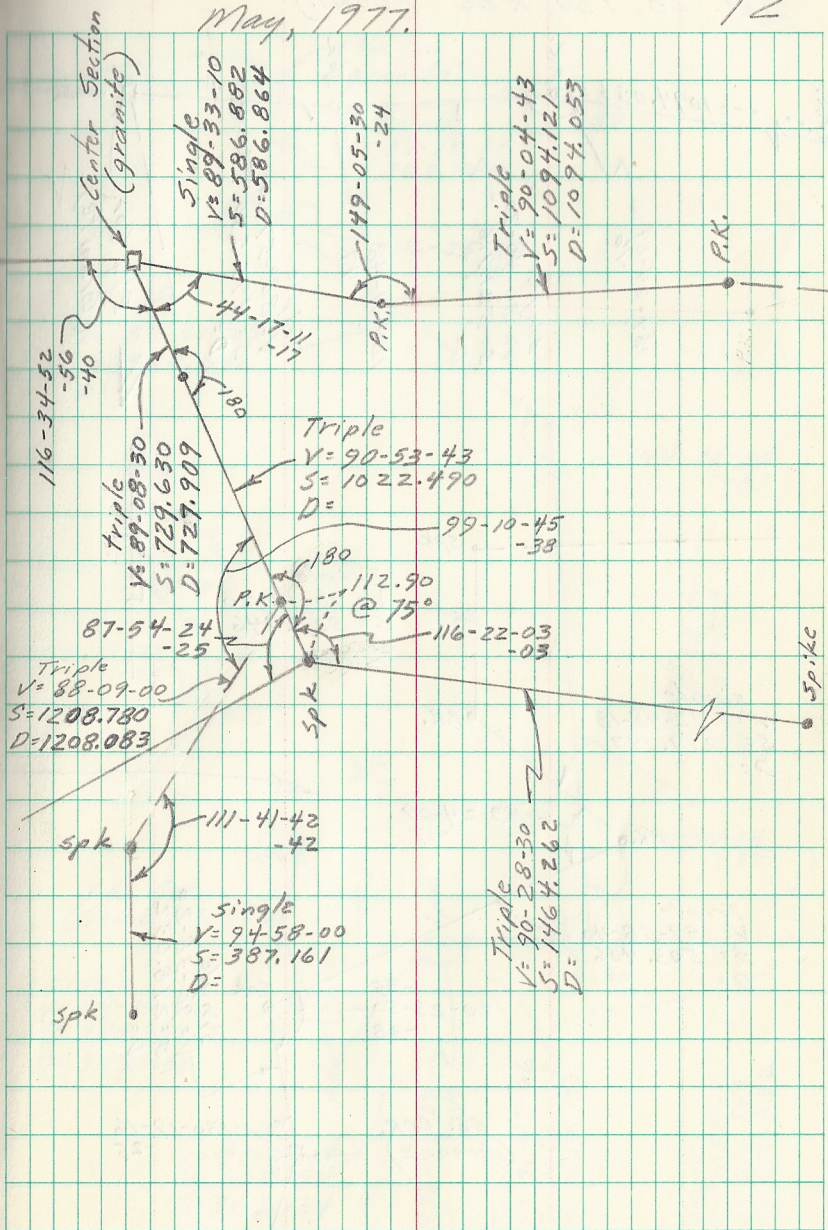 May, 1977.
12
Center Section
(granite)
Single
V= 89-33-10
S= 586.882
D= 586.864
149-05-30
-24
Triple
V= 90-04-43
S= 1094.121
D= 1094.053
P.K.
P.K.
44-17-11
-17
116-34-52
-56
-40
180
triple
V= 89-08-30
S= 729.630
D= 727.909
Triple
V= 90-53-43
S= 1022.490
D=
99-10-45
-38
180
P.K.
112.90
@ 75°
87-54-24
-25
116-22-03
-03
Triple
V= 88-09-00
S=1208.780
D=1208.083
spk
Spike
spk
111-41-42
-42
Triple
V= 90-28-30
S= 1464.262
D=
single
V= 94-58-00
S= 387.161
D=
spk